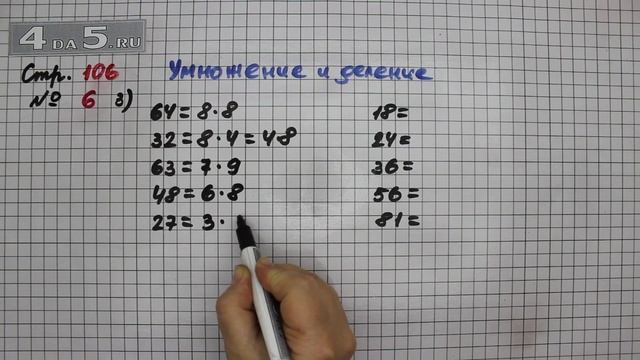 4DA5.RU
Стр. 106 Умножение и деление
№ 6 3)
64 = 8 · 8 18 =
32 = 8 · 4 = 48 24 =
63 = 7 · 9 36 =
48 = 6 · 8 56 =
27 = 3 · 81 =